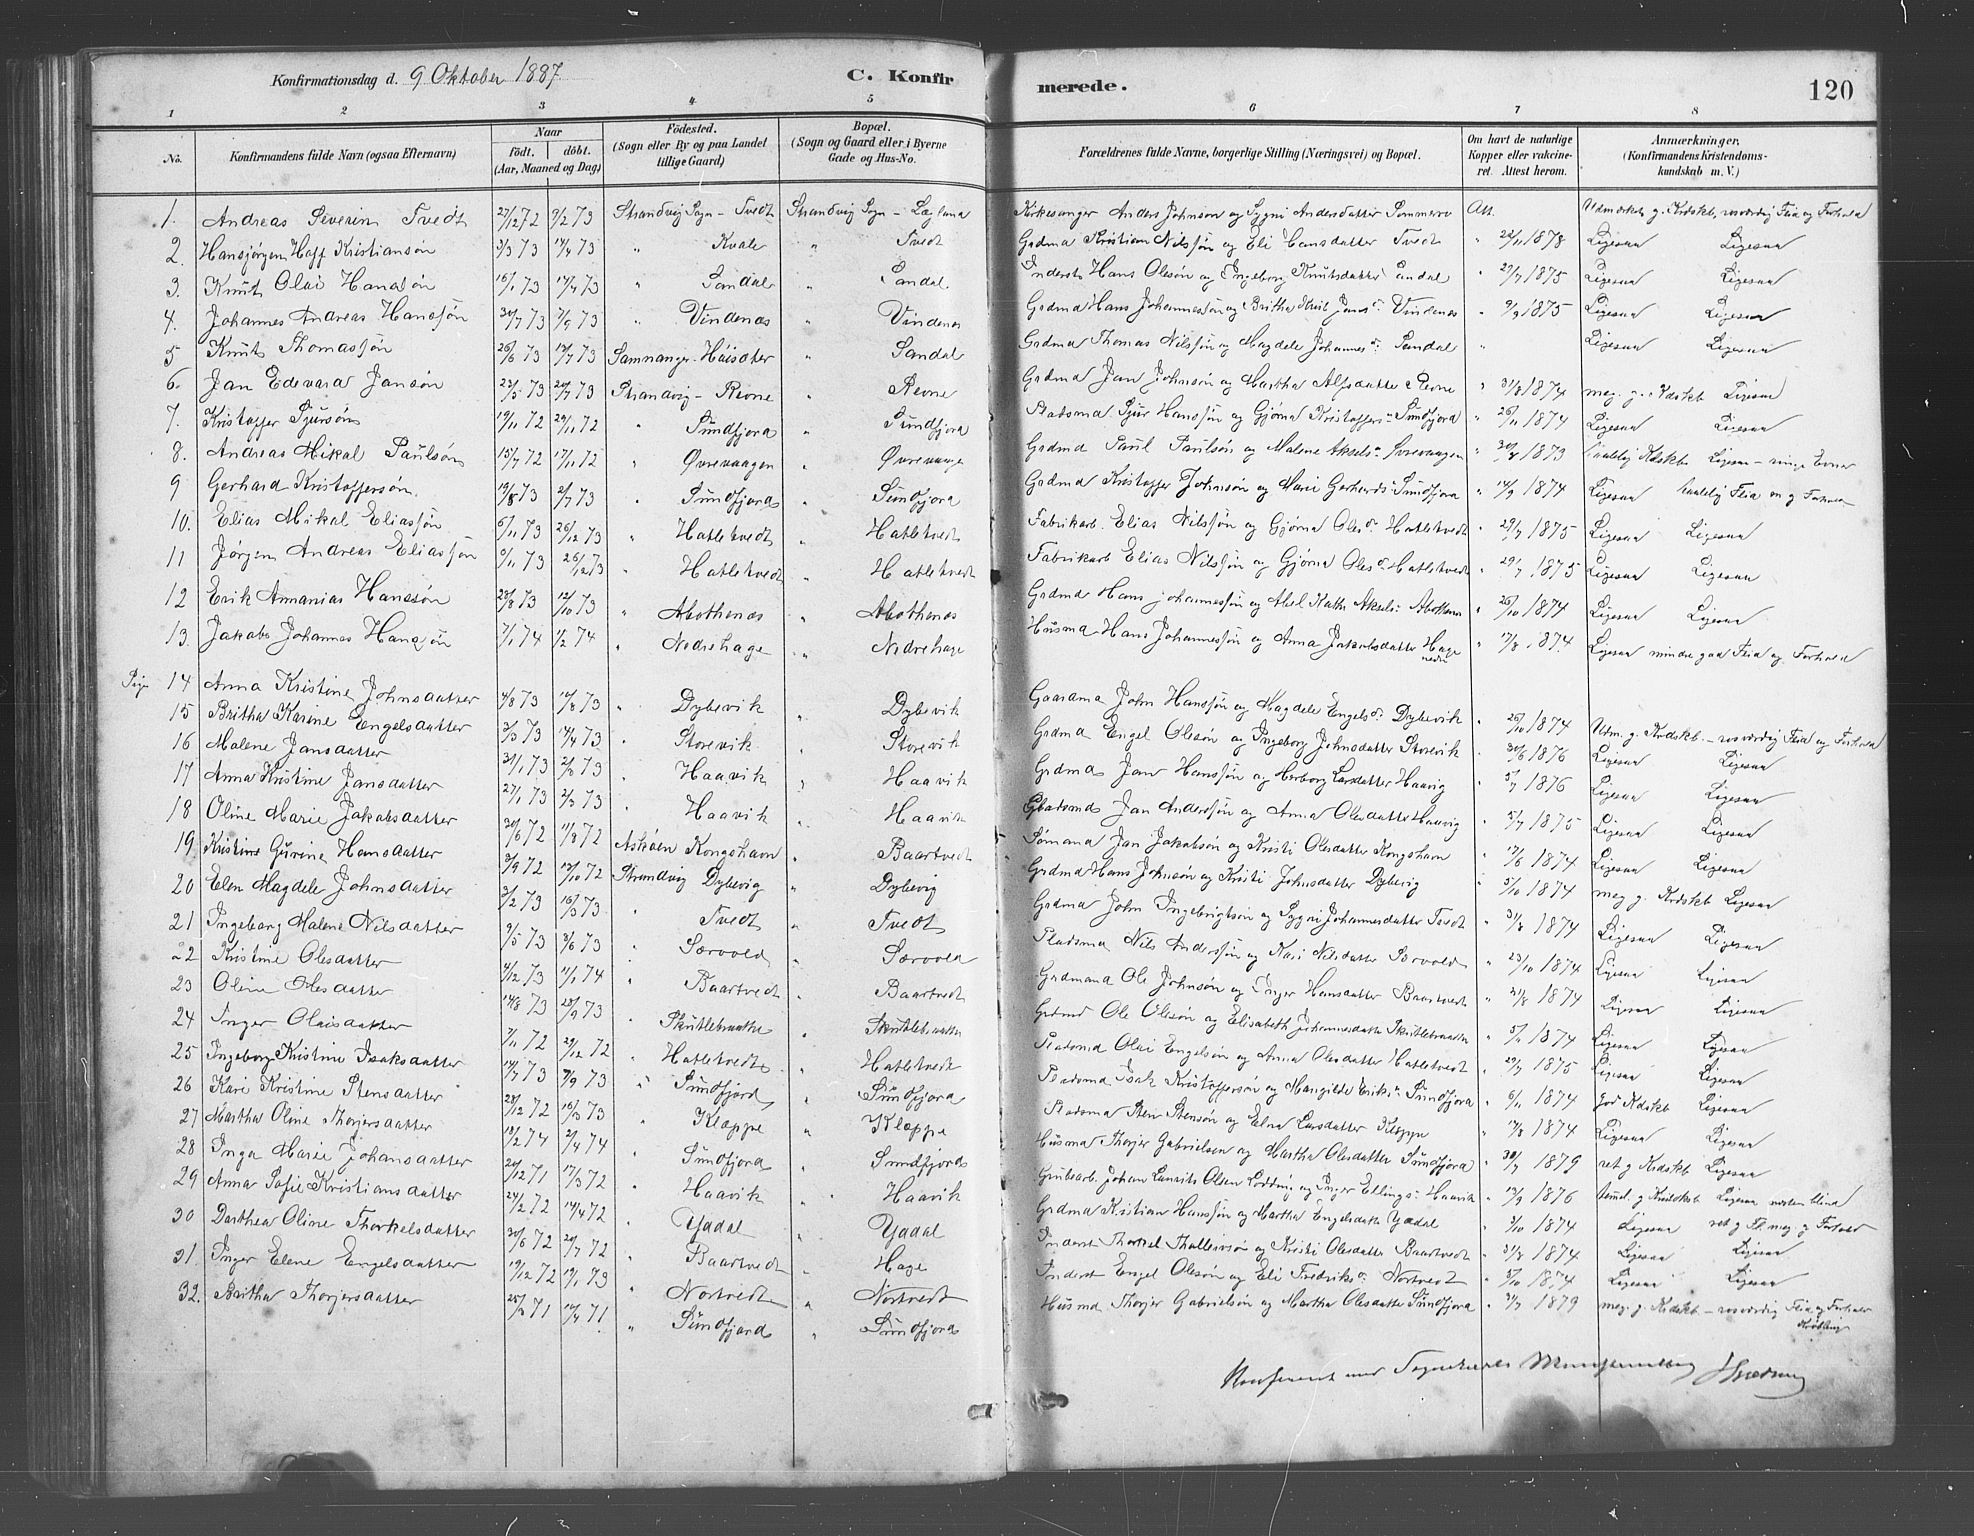 Konfirmationsdag d. 9 Oktober 1887. C. Konfirmerede. 120
1 2 3 4 5 6 7 8
No. Konfirmandens fulde Navn (ogsaa Efternavn) Naar födt. döbt. (Aar, Maaned og Dag) Födested. (Sogn eller By og paa Landet tillige Gaard) Bopæl. (Sogn og Gaard eller i Byerne Gade og Hus-No. Forældrenes fulde Navne, borgerlige Stilling (Næringsvei) og Bopæl. Om havt de naturlige Kopper eller vakcineret. Attest herom. Anmærkninger, (Konfirmandens Kristendomskundskab m. V.)
1. Andreas Severin Tvedt 27/12 72 9/2 73 Strandvig Sogn - Tvedt Strandvig Sogn - Kirkesanger Anders Johnson og Sygni Andersdatter Att.
2. Hansjørgen Haff Kristiansøn 3/3 73 14/4 73 " Kvale " Tvedt Grdmd Kristian Nilssøn og Eli Hansdatter Tvedt " 22/11 1878 Ligesaa Ligesaa
3. Knut Olai Hanssøn 16/1 73 14/4 73 " Sandal " Sandal Inderst Hans Olesøn og Ingeborg Knutsdatter Sandal " 27/7 1875 Ligesaa Ligesaa
4. Johannes Andreas Hanssøn 30/7 73 7/9 73 " Vindenæs " Vindenes Grdmd Hans Johannessøn og Britha Vindenes " 9/9 1875 Ligesaa Ligesaa
5 Knut Thomassøn 26/6 73 13/7 73 Samnanger - " Sandal Grdmd Thomas Nilssøn og Magdele Johannesd: Sandal " Ligesaa Ligesaa
6. Jan Edevard Jansøn 23/5 73 20/7 73 Strandvig - Revne " Revne Grdmd Jan Johnsøn og Martha Alfsdatter Revne " 31/8 1874 meg. g. Kdskb Ligesaa
7. Kristoffer Sjursøn 19/11 72 29/11 72 " Sundfjord " Sundfjord Pladsmd Sjur Hanssøn og Gjørna Kristoffers: Sundfjord " 26/11 1874 Ligesaa Ligesaa
8. Andreas Mikal Paulsøn 15/7 72 17/11 72 " Øvrevaagen " Øvrevaage Grdmd Paul Paulsøn og Malene Aksels: " 30/8 1873 Ligesaa - ringe Evner
9 Gerhard Kristoffersøn 19/8 73 2/7 73 " Sundfjord " Sundfjord Grdmd Kristoffer Johnsøn og Marie Gerhards: Sundfjord " 14/9 1874 Ligesaa Flid og Forhold
10. Elias Mikal Eliassøn 6/11 73 26/12 73 " Hatletvedt " Hatletvedt Fabrikarb. Elias Nilssøn og Gjørna Olesd: Hatletvedt " 29/7 1875 Ligesaa Ligesaa
11 Jørgen Andreas Eliassøn 6/11 73 26/12 73 " Hatletvedt " Hatletvedt Fabrikarb Elias Nilssøn og Gjørna Olesd: Hatletvedt " 29/7 1875 Ligesaa Ligesaa
12 Erik Annanias Hanssøn 23/8 73 12/10 73 " Abothenæs " Abothenæs Grdmd Hans Johannessøn og Abel Kath. Aksels: " 26/10 1874 Ligesaa Ligesaa
13. Jakob Johannes Hanssøn 7/1 74 1/2 74 " Nedrehage " Nedrehage Husmd Hans Johannessøn og Anna Jakobsdatter Hage nedre " 17/8 1874 Ligesaa mindre god Flid og Forhold
Pige 14 Anna Kristine Johnsdatter 4/8 73 14/8 73 " Dybevik " Dybevik Gaardmd John Hanssøn og Magdele Engelsd: Dybevik " 26/10 1874 Udm. g. Krdskb. - rosværdig Flid og Forhold
15 Britha Karine Engelsdatter 3/3 73 14/4 73 " Storevik " Storevik Grdmd Engel Olssøn og Ingeborg Johnsdatter Storevik " 30/6 1876 Ligesaa Ligesaa
16 Malene Jansdatter 31/1 73 2/3 73 " Haavik " Haavik Grdmd Jan Hanssøn og Herborg Larsdatter Haavig " 5/7 1876 Ligesaa Ligesaa
17 Anna Kristine Jansdatter 27/1 73 2/3 73 " Haavik " Haavik Jan Anderssøn og Anna Olesdatter Haavig " 5/7 1875 Ligesaa Ligesaa
18 Oline Marie Jakobsdatter 30/6 72 11/8 72 Askøen Kongshavn " Baartvedt Sømand Jan Jakobsøn og Kristi Olesdatter Kongshavn " 17/6 1874 Ligesaa Ligesaa
19 Kristine Gurine Hansdatter 3/9 72 13/10 72 Strandvig Dybevig " Dybevig Grdmd Hans Johnsøn og Kristi Johnsdatter Dybevig " 5/10 1874 meg g. Krdskb Ligesaa
20 Elen Magdele Johnsdatter 3/2 73 16/3 73 " Tvedt " Tvedt Grdmd John Ingebrigtsøn og Sygni Johannesdatter Tvedt " 31/8 1874 Ligesaa Ligesaa
21 Ingeborg Malene Nilsdatter 9/5 73 3/6 73 " Sørvold " Sørvold Pladsmd Nils Anderssøn og Kari Nilsdatter Sørvold " 23/10 1874 Ligesaa Ligesaa
22 Kristine Olesdatter 4/12 73 11/1 74 " Baartvedt " Baartvedt Grdmand Ole Johnsøn og Inger Hansdatter Baartvedt " 31/8 1874 Ligesaa Ligesaa
23 Oline Olesdatter 14/8 73 28/9 73 " Skutlebratte " Skutlebratte Grdmd Ole Olesøn og Elisabeth Johannesdatter " 5/11 1874 Ligesaa Ligesaa
24 Inger Olaisdatter 7/11 72 29/12 72 " Hatletvedt " Hatletvedt Pladsmd Olai Engelsøn og Anna Olesdatter Hatletvedt " 29/7 1875 Ligesaa Ligesaa
25 Ingeborg Kristine Isaksdatter 14/7 73 7/9 73 " Sundfjord " Sundfjord Pladsmd Isak Kristoffersøn og Mangilde Eriks: Sundfjord " 6/11 1874 god Kdskb Ligesaa
26 Kari Kristine Stensdatter 28/12 72 16/3 73 " Kleppe " Kleppe Pladsmd Sten Stensøn og Elna Larsdatter " 17/8 1874 Ligesaa Ligesaa
27 Martha Oline Thorjersdatter 13/2 74 2/4 74 " Sundfjord " Sundfjord Husmd Thorjer Gabrielsen og Martha Olesdatter Sundfjord " 30/7 1879 ret g Krdskb Ligesaa
28 Inga Marie Johansdatter 20/12 71 17/3 72 " Haavik " Haavik Grubearb. Johan Lauritz Olsen og Inger Ellings: Haavik " 13/9 1876 temel. g Krdskb Ligesaa
29 Anna Sofie Kristiansdatter 24/2 72 14/4 72 " Yddal " Yddal Grdmd Kristian Hanssøn og Martha Engelsdatter Yddal " 3/10 1874 Ligesaa
30 Dorthea Oline Thorkelsdatter 30/6 72 20/7 72 " Baartvedt " Hage Inderst Thorkel og Kristi Olesdatter Baartvedt " 31/8 1874 Ligesaa Ligesaa
31. Inger Elene Engelsdatter 19/12 72 19/1 73 " Nortvedt " Nortvedt Inderst Engel Olesøn og Eli Fredriksd: Nortvedt " 5/10 1874 Ligesaa Ligesaa
32. Britha Thorjersdatter 25/2 71 14/4 71 " Sundfjord " Sundfjord Husmd Thorjer Gabrielsøn og Martha Olesdatter Sundfjord " 31/7 1879 meg. g. Krdskb. - rosværdig Flid og Forhold